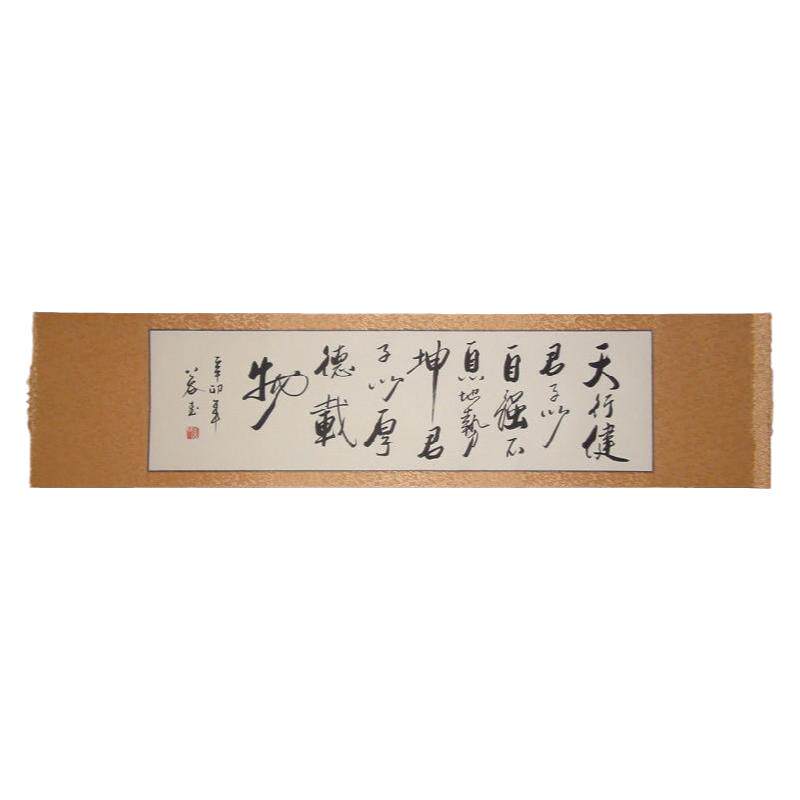 天行健
君子以
自强不
息地势
坤君
子以厚
德載
物
辛卯年